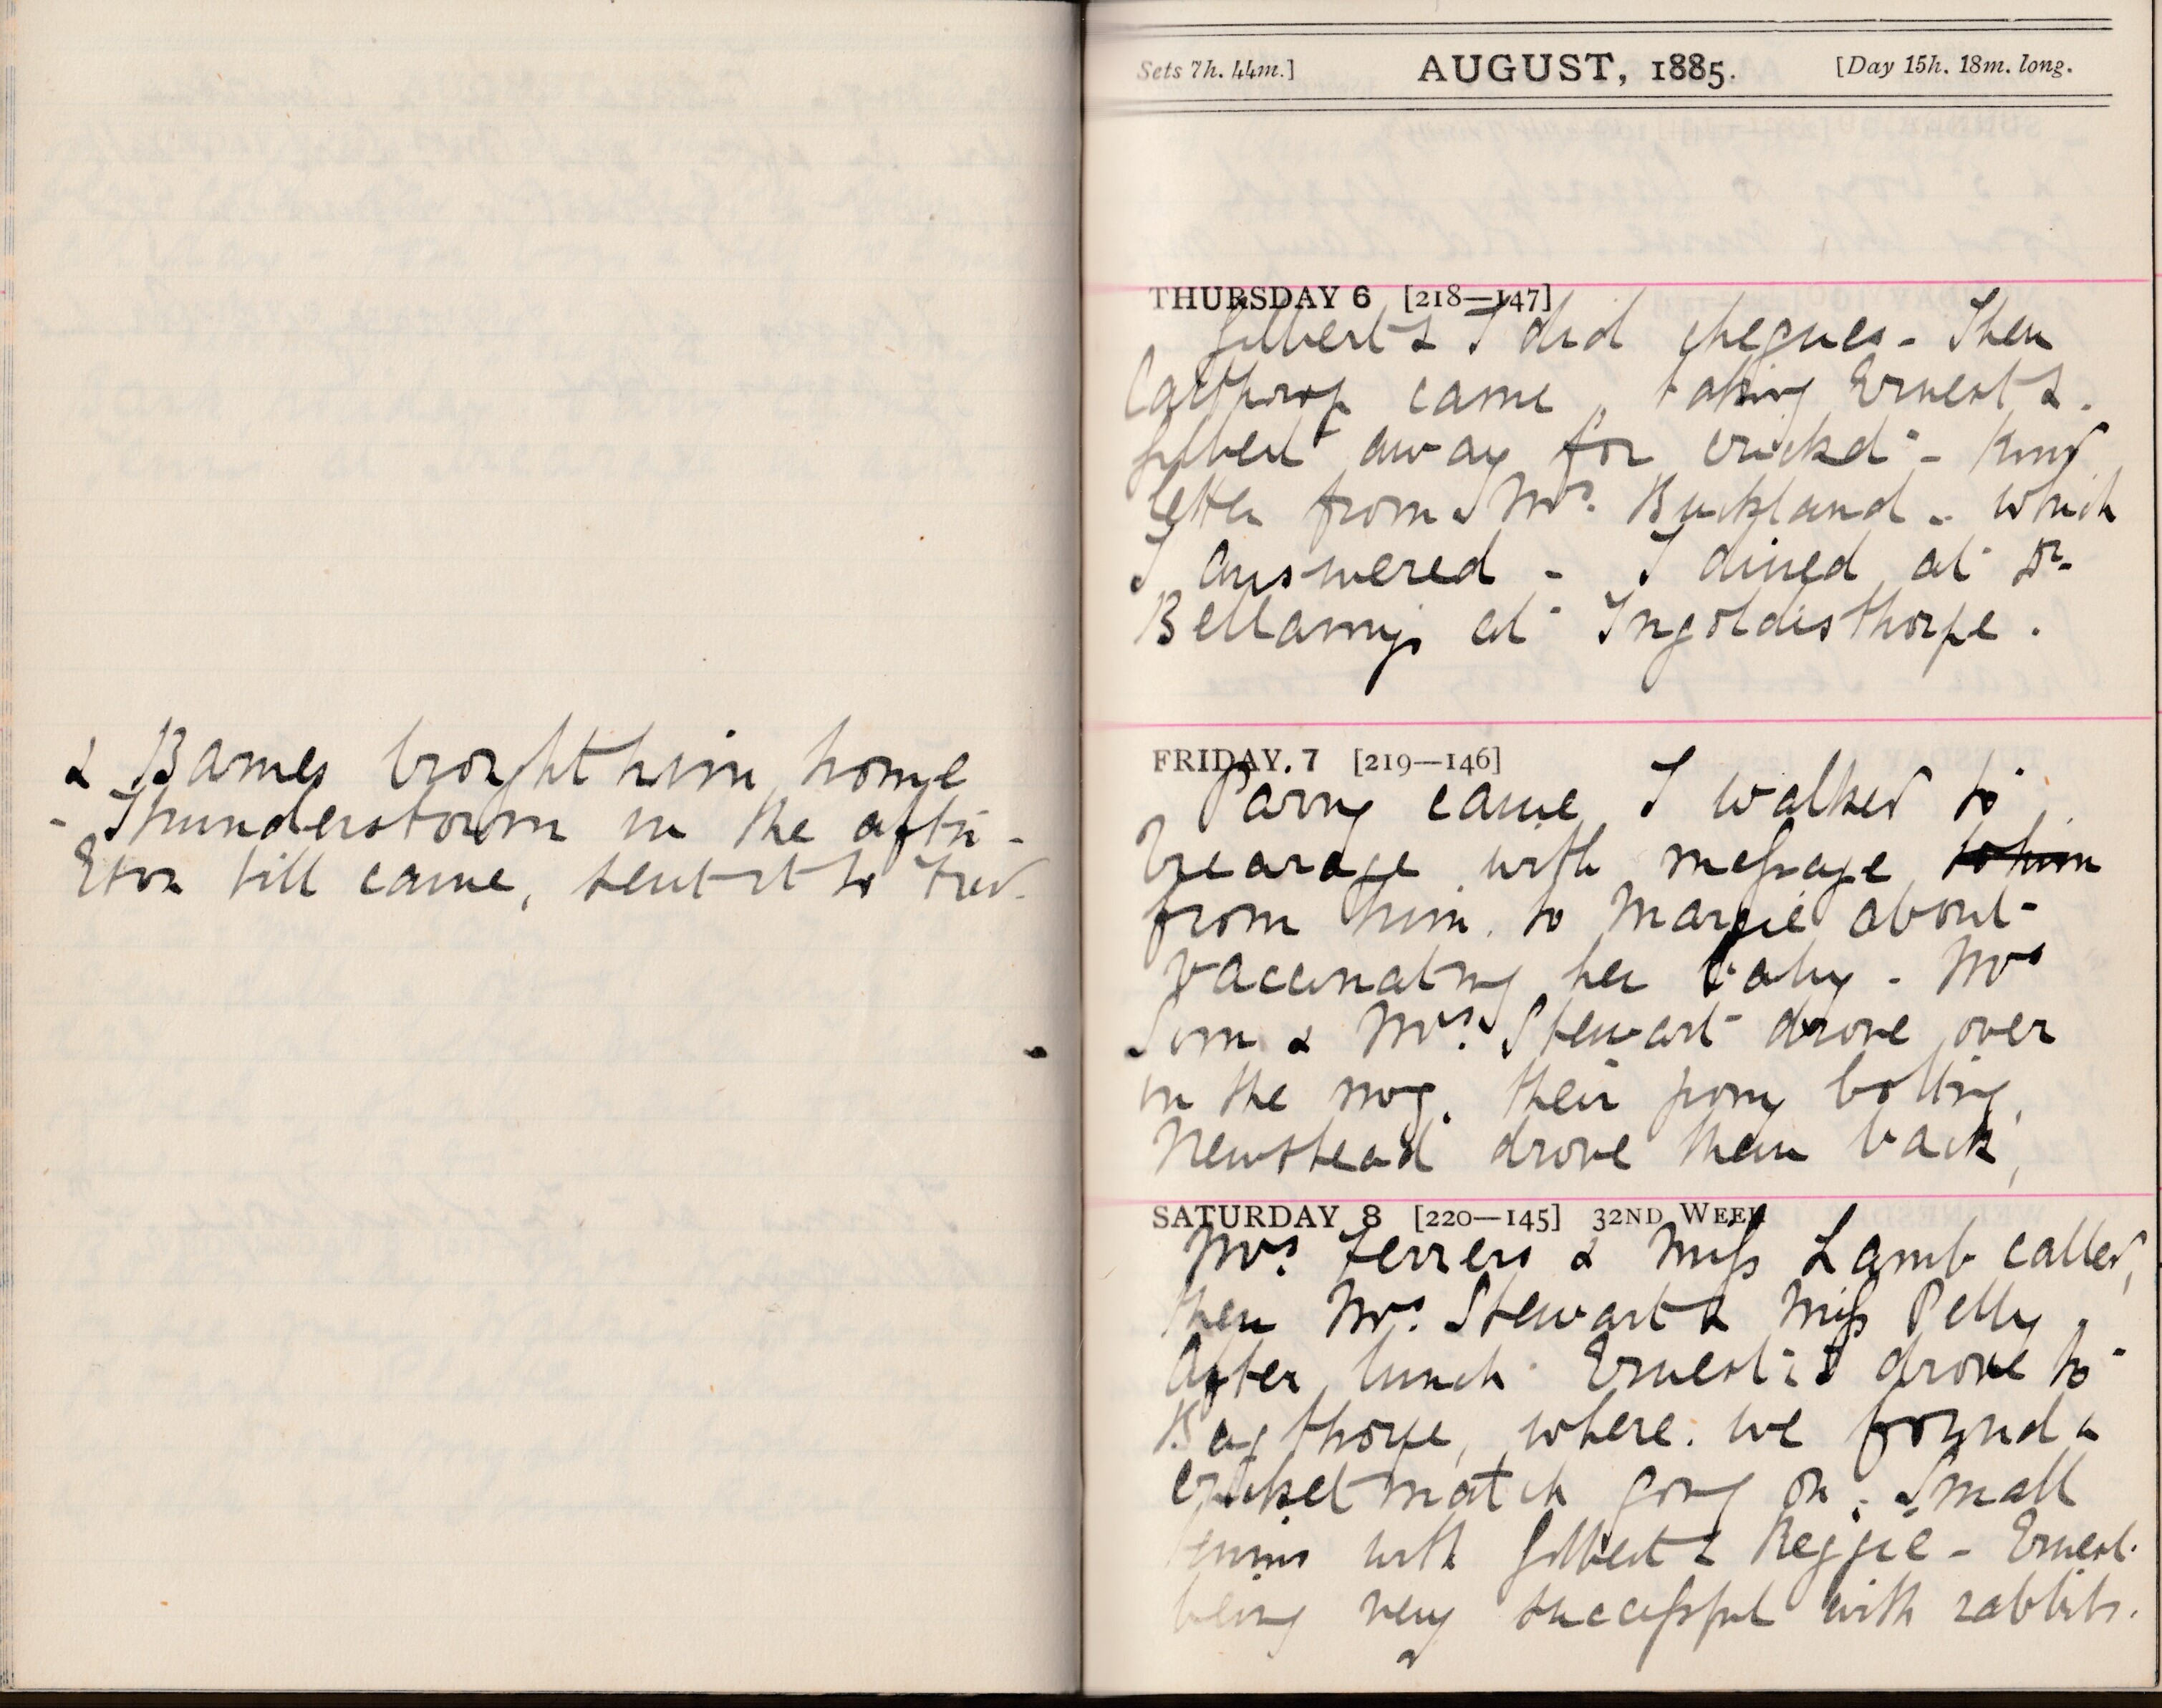 & Barnes brought him home
- Thunderstorm in the aftn -
Eton bill came, sent it to Fred.
Sets 7h. 44m.] AUGUST, 1885. [Day 15h. 18m. long.
THURSDAY 6 [218—147]
Gilbert & I did cheques - Then
Calthrop came, taking Ernest &
Gilbert away for cricket - Kind
letter from Mrs. Buckland - which
I answered - I dined at Dr.
Bellamy's at Ingoldisthorpe.
FRIDAY. 7 [219—146]
came I walked to
Vicarage with message to him
from him to Margie about
vaccinating her baby - Mrs
& Mrs. Stewart drove over
in the mog. their pony bolting,
Newstead drove them back,
SATURDAY 8 [220—145] 32ND WEEK
Mrs. Ferrers & Miss Lamb called,
then Mrs. Stewart & Miss Pelly.
After lunch Ernest & I drove to
Bagthorpe, where we found a
cricket match going on - Small
tennis with Gilbert & Reggie - Ernest
being very successful with rabbits.